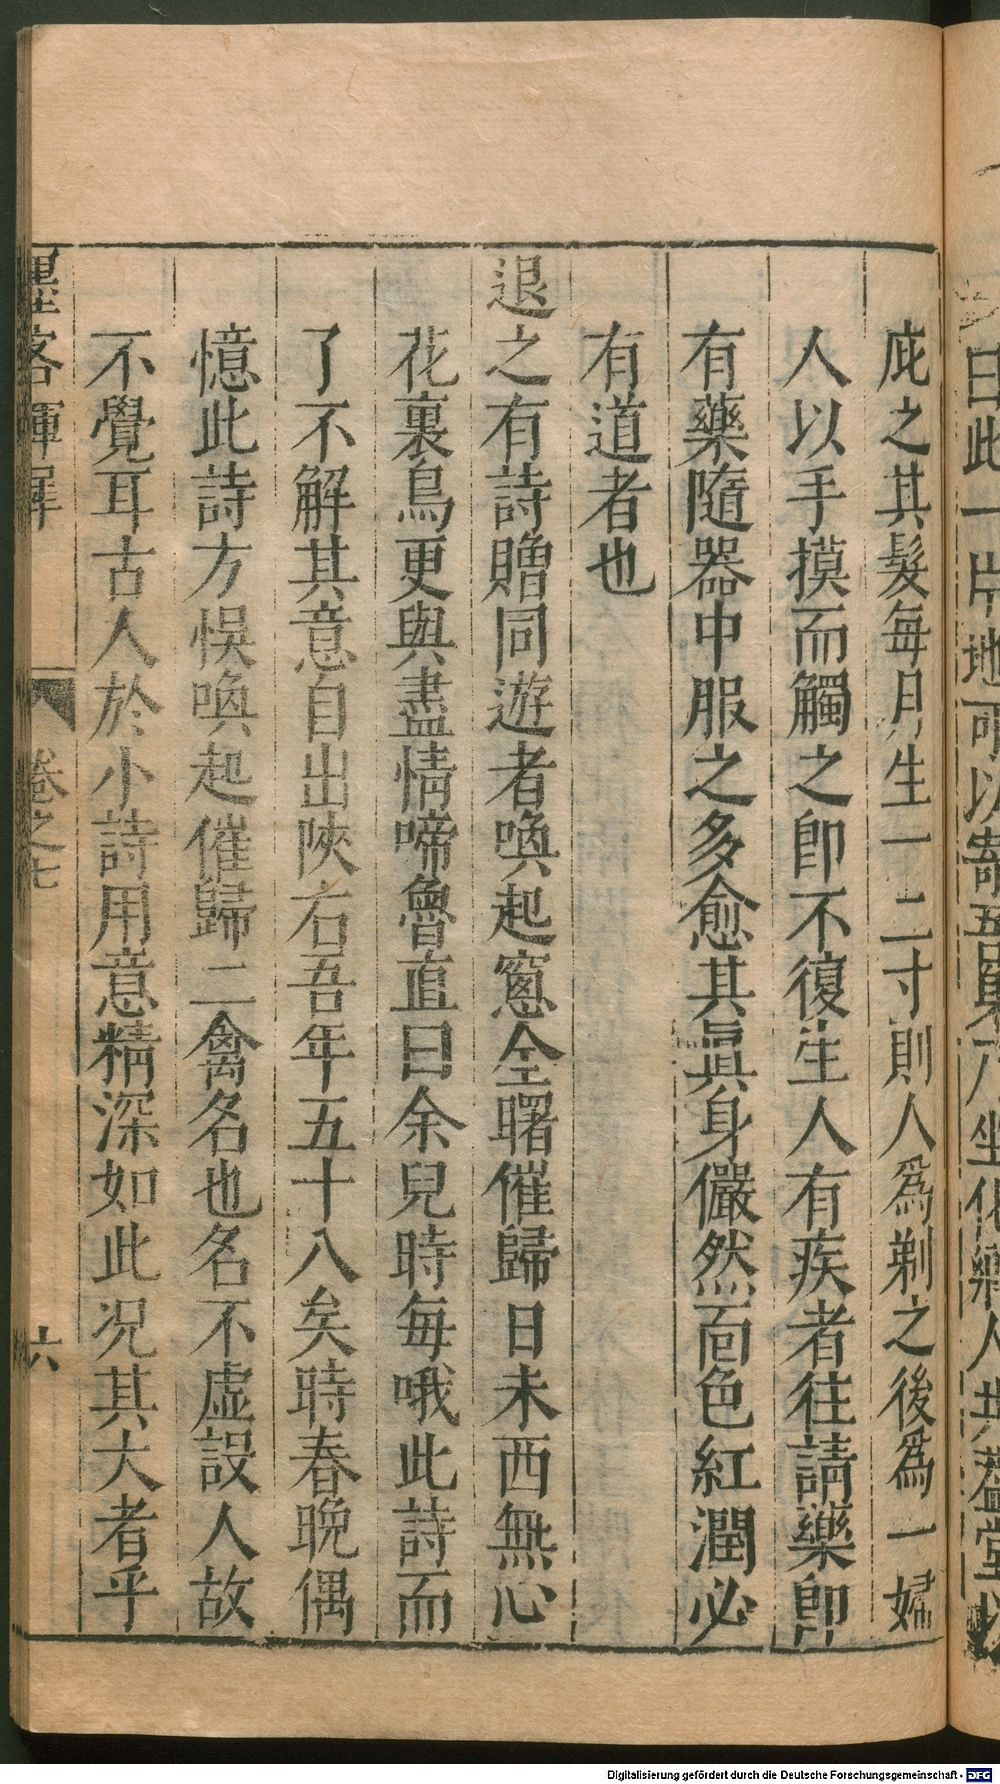 庇之其髮每月生一二寸則人為剃之後為一婦
人以手摸而觸之即不復生人有疾者往請藥即
有藥隨器中服之多愈其眞身儼然面色紅潤必
有道者也
退之有詩贈同遊者喚起窻全曙催歸日未西無心
花裏鳥更與盡情啼魯直曰余兒時每哦此詩而
了不解其意自出陝右吾年五十八矣時春晚偶
憶此詩方悮喚起催歸二禽名也名不虛設人故
不覺耳古人於小詩用意精深如此况其大者乎
墨客揮犀
卷之七
六
Digitalisierung gefördert durch die Deutsche Forschungsgemeinschaft - DFG